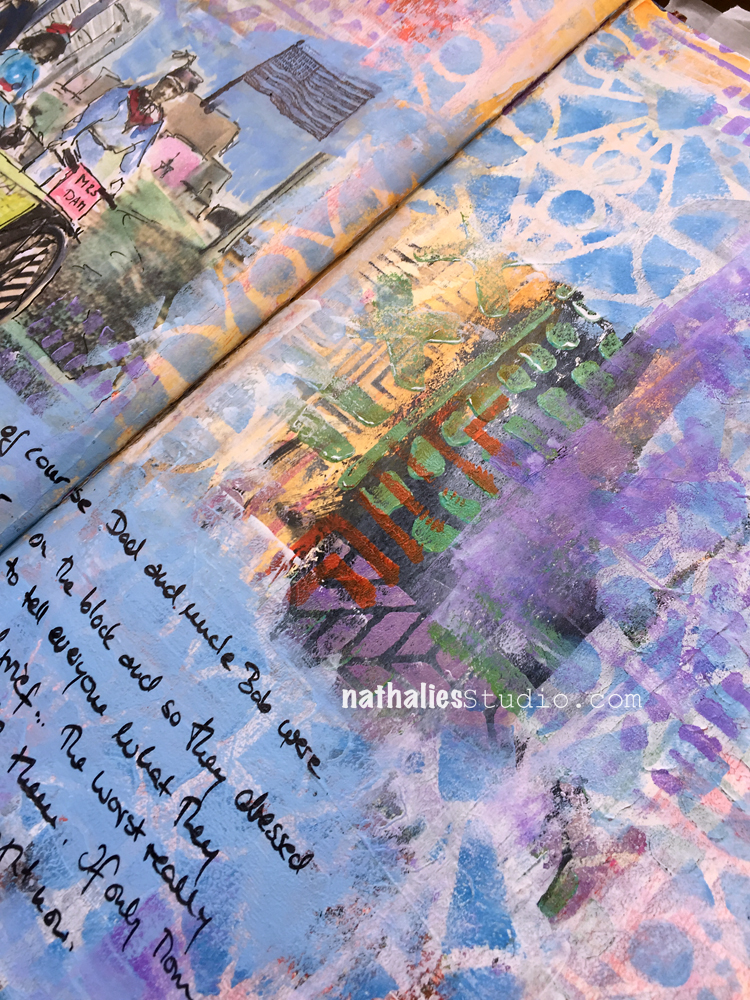 M2S
DAM
of course Dad and uncle Bob were
on the block and so they obsessed
to tell everyone what they
brief... The worst really
them. If only Mom
now.
nathaliesstudio.com